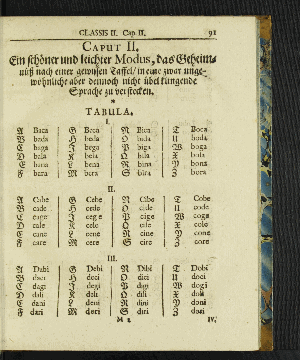 CLASSIS II. Cap. II. 91
CAPUT II.
Ein schöner und leichter Modus, das Geheim-
nüß nach einer gewissen Taffel/ in eine zwar unge-
wöhnliche aber dennoch nicht übel klingende
Sprache zu verstecken.
*
TABULA.
I.
A Baca G Beca N Bica T Boca
B bada H beda O bida U boda
C baga J bega P biga W boga
D bala K bela Q bila X bola
E bana L bena R bina Y bona
F bara M bera S bira Z bora
II.
A Cabe G Cebe N Cibe T Cobe
B cade H cede O cide U code
C cage J cege P cige W coge
D cale K cele Q cile X cole
E cane L cene R cine Y cone
F care M cere S cire Z core
III.
A Dabi G Debi N Dibi T Dobi
B daci H deci O dici U doci
C dagi J degi P digi W dogi
D dali K deli Q dili X doli
E dani L deni R dini Y doni
F dari M deri S diri Z dori
M 2 IV.